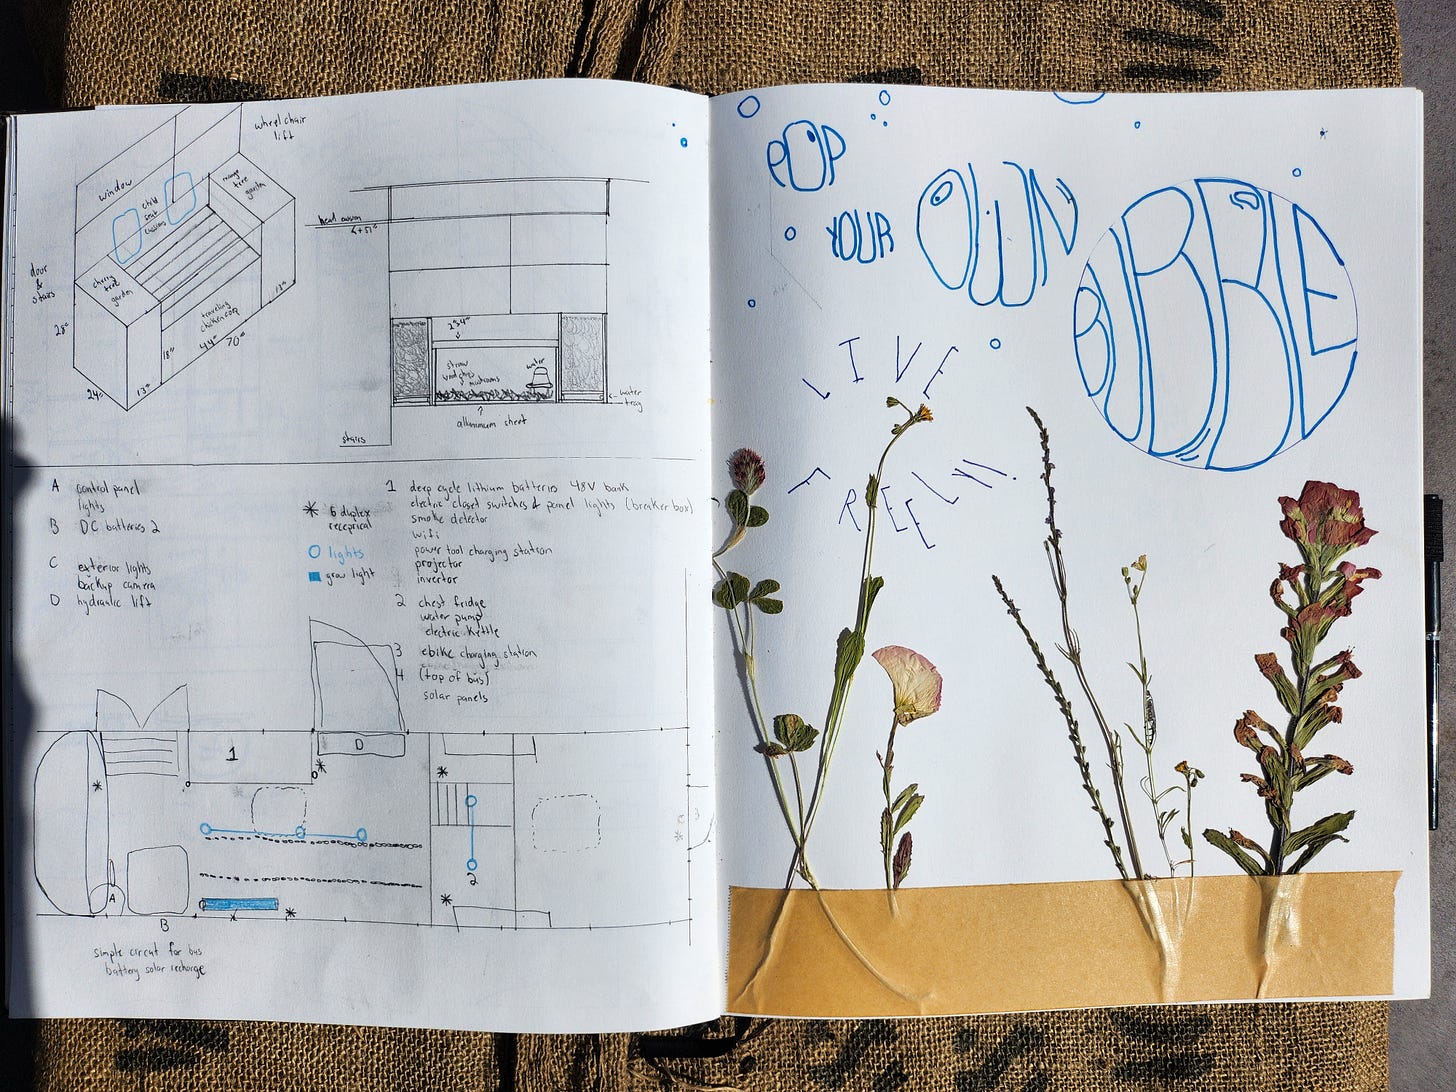 wheel chair
lift
window
child
seat
mango
tree
garden
door
&
stairs
cherry
tree
garden
traveling
chicken coop
28"
18"
44"
70"
13"
24"
13"
head room
2'4"
straw
wood chips
mushrooms
water
water
tray
aluminum sheet
stairs
A control panel
lights
B DC batteries 2
C exterior lights
backup camera
D hydraulic lift
* 6 duplex
receprical
lights
grow light
1 deep cycle lithium batteries 48V bank
electric closet switches & panel lights (breaker box)
smoke detector
wifi
power tool charging station
projector
invertor
2 chest fridge
water pump
electric kettle
3 ebike charging station
4 (top of bus)
solar panels
1
D
*
*
*
2
A
*
*
B
simple circuit for bus
battery solar recharge
POP
YOUR
OWN
BUBBLE
LIVE
FREELY!